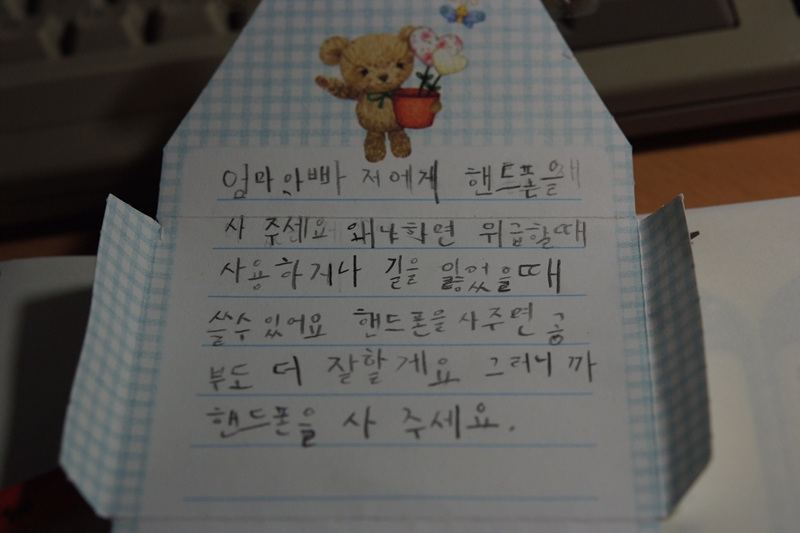 엄마아빠 저에게 핸드폰을
사 주세요 왜냐하면 위급할때
사용하거나 길을 잃었을때
쓸수 있어요 핸드폰을 사주면 공
부도 더 잘할게요 그러니까
핸드폰을 사 주세요.